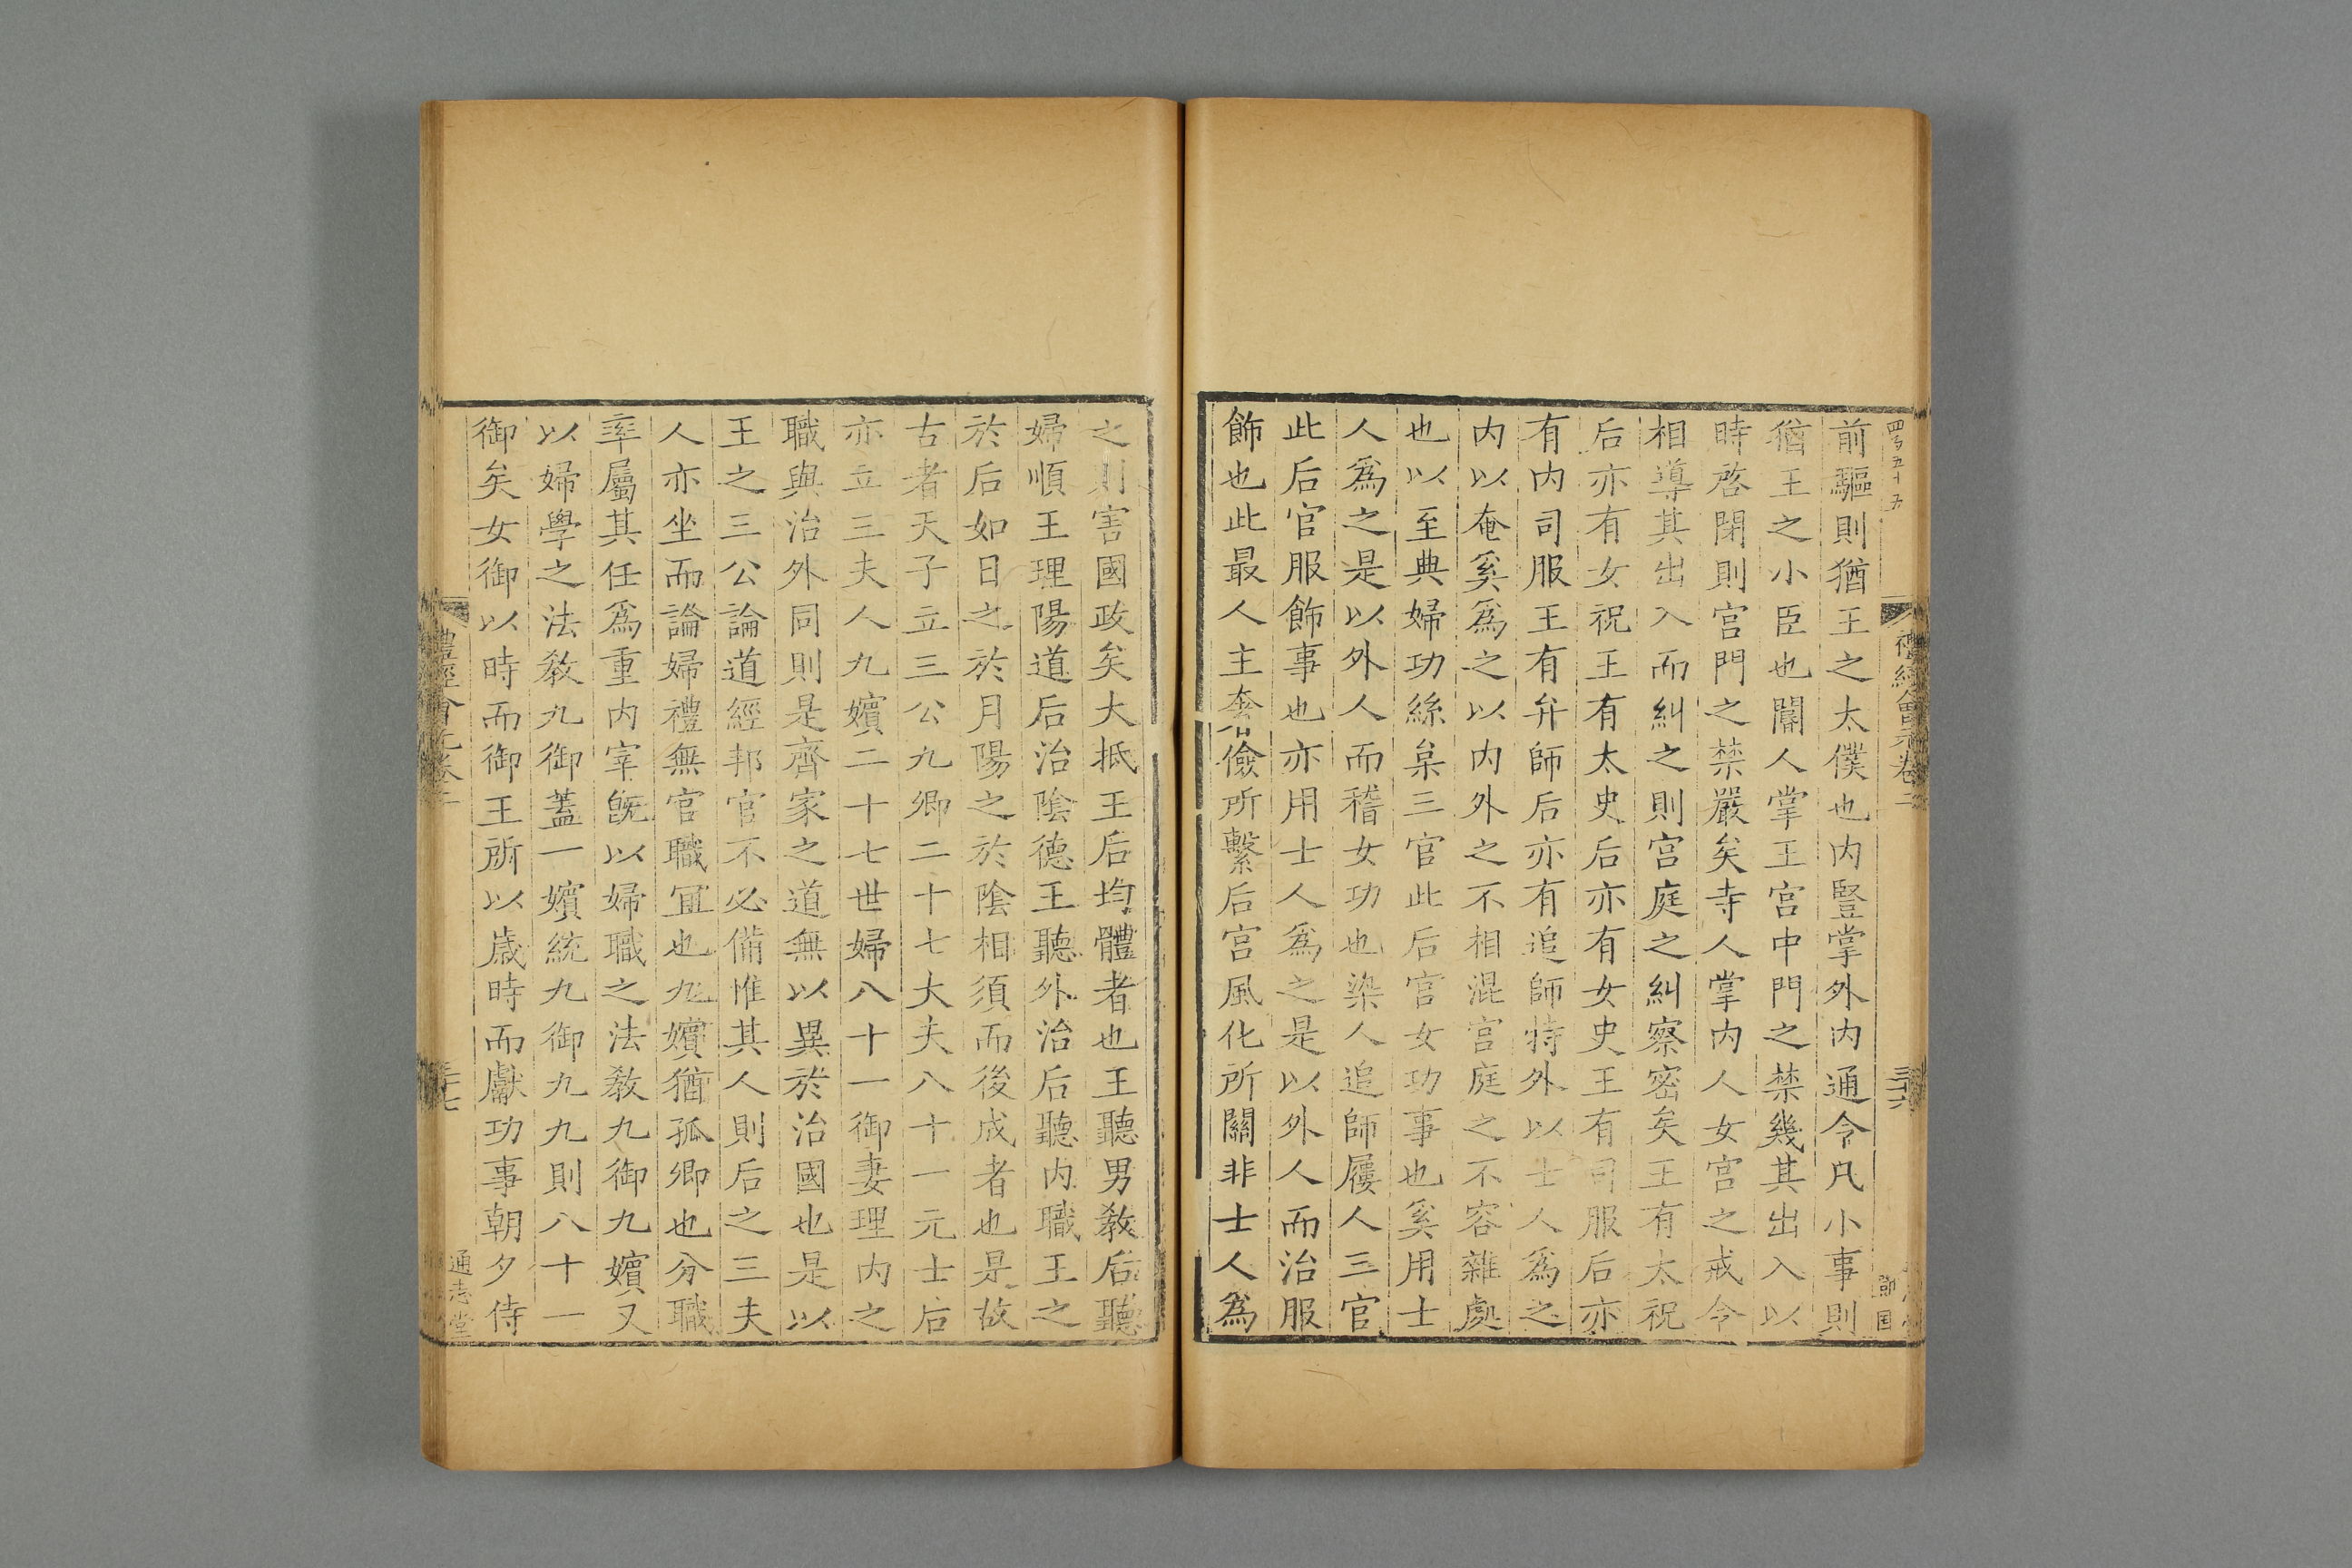 前驅則猶王之太僕也内豎掌外内通令凡小事則
猶王之小臣也閽人掌王宫中門之禁幾其出入以
時啓閉則宫門之禁嚴矣寺人掌内人女宫之戒令
相導其出入而糾之則宫庭之糾察密矣王有太祝
后亦有女祝王有太史后亦有女史王有司服后亦
有内司服王有弁師后亦有追師特外以士人為之
内以奄奚爲之以内外之不相混宫庭之不容雜處
也以至典婦功絲枲三官此后宫女功事也奚用士
人爲之是以外人而稽女功也染人追師屨人三官
此后官服飾事也亦用士人爲之是以外人而治服
飾也此最人主奢儉所繫后宫風化所關非士人爲
之則害國政矣大抵王后均體者也王聽男教后聽
婦順王理陽道后治陰德王聽外治后聽内職王之
於后如日之於月陽之於陰相須而後成者也是故
古者天子立三公九卿二十七大夫八十一元士后
亦立三夫人九嬪二十七世婦八十一御妻理内之
職與治外同則是齊家之道無以異於治國也是以
王之三公論道經邦官不必備惟其人則后之三夫
人亦坐而論婦禮無官職冝也九嬪猶孤卿也分職
率屬其任爲重内宰旣以婦職之法教九御九嬪又
以婦學之法教九御蓋一嬪統九御九九則八十一
御矣女御以時而御王所以歳時而獻功事朝夕侍
四百五十五
禮經會元卷二
三十六
禮經會元卷二
三十七
通志堂